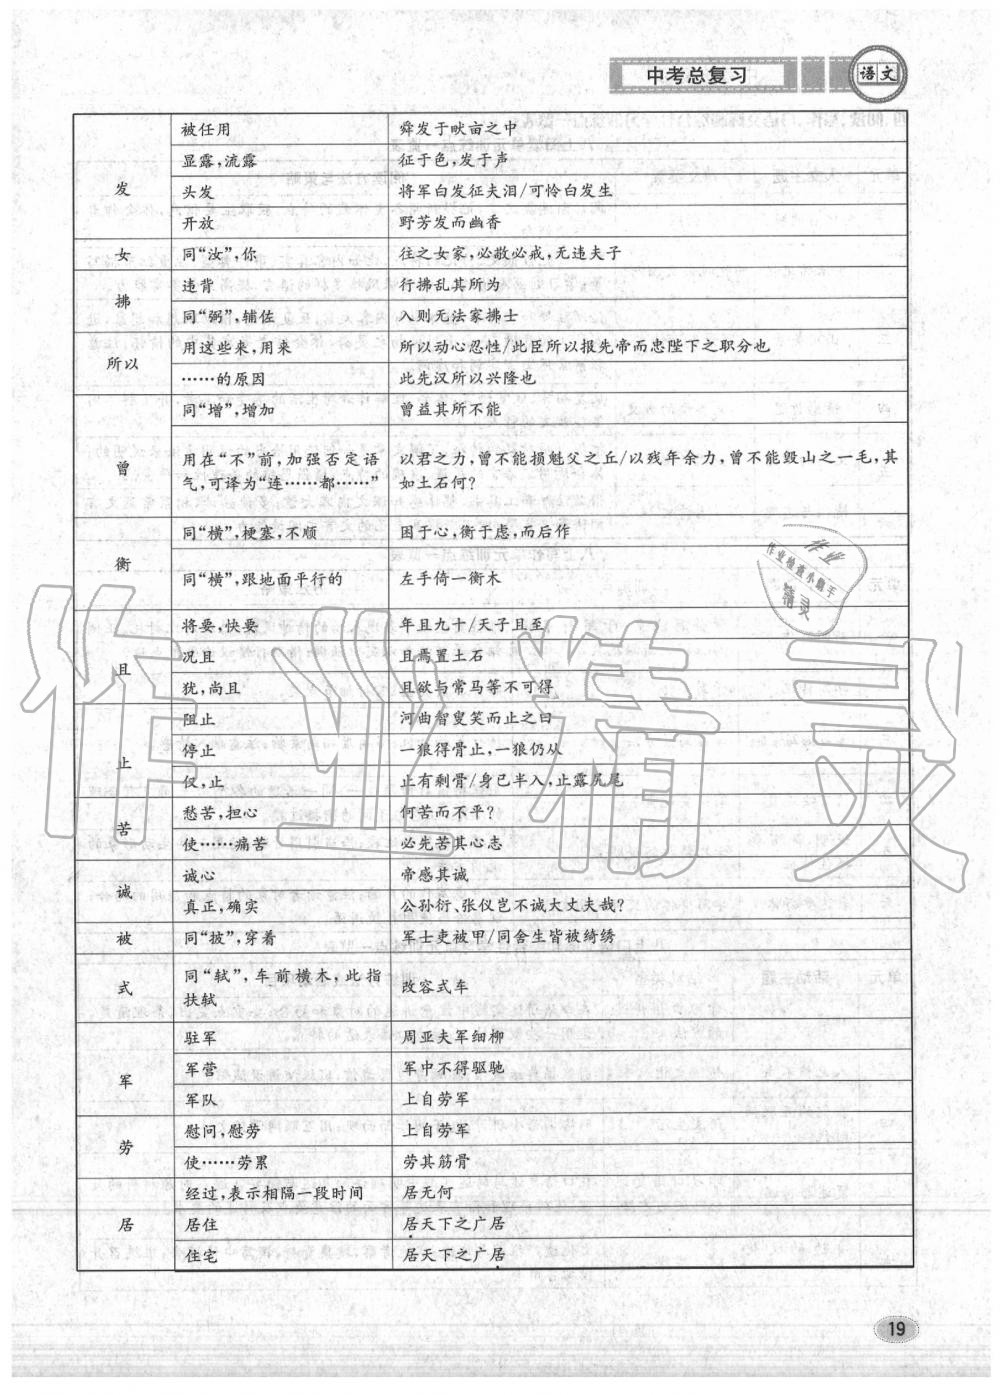 中考总复习
语文
发
被任用 舜发于畎亩之中
显露,流露 征于色,发于声
头发 将军白发征夫泪/可怜白发生
开放 野芳发而幽香
女 同“汝”,你 往之女家,必敬必戒,无违夫子
拂
违背 行拂乱其所为
同“弼”,辅佐 入则无法家拂士
所以
用这些来,用来 所以动心忍性/此臣所以报先帝而忠陛下之职分也
……的原因 此先汉所以兴隆也
曾
同“增”,增加 曾益其所不能
用在“不”前,加强否定语
气,可译为“连……都……”
以君之力,曾不能损魁父之丘/以残年余力,曾不能毁山之一毛,其
如土石何?
衡
同“横”,梗塞,不顺 困于心,衡于虑,而后作
同“横”,跟地面平行的 左手倚一衡木
且
将要,快要 年且九十/天子且至
况且 且焉置土石
犹,尚且 且欲与常马等不可得
止
阻止 河曲智叟笑而止之曰
停止 一狼得骨止,一狼仍从
仅,止 止有剩骨/身已半入,止露尻尾
苦
愁苦,担心 何苦而不平?
使……痛苦 必先苦其心志
诚
诚心 帝感其诚
真正,确实 公孙衍、张仪岂不诚大丈夫哉?
被 同“披”,穿着 军士吏被甲/同舍生皆被绮绣
式
同“轼”,车前横木,此指
扶轼
改容式车
军
驻军 周亚夫军细柳
军营 军中不得驱驰
军队 上自劳军
劳
慰问,慰劳 上自劳军
使……劳累 劳其筋骨
居
经过,表示相隔一段时间 居无何
居住 居天下之广居
住宅 居天下之广居
19
作业
作业检查小助手
精灵
作业精灵